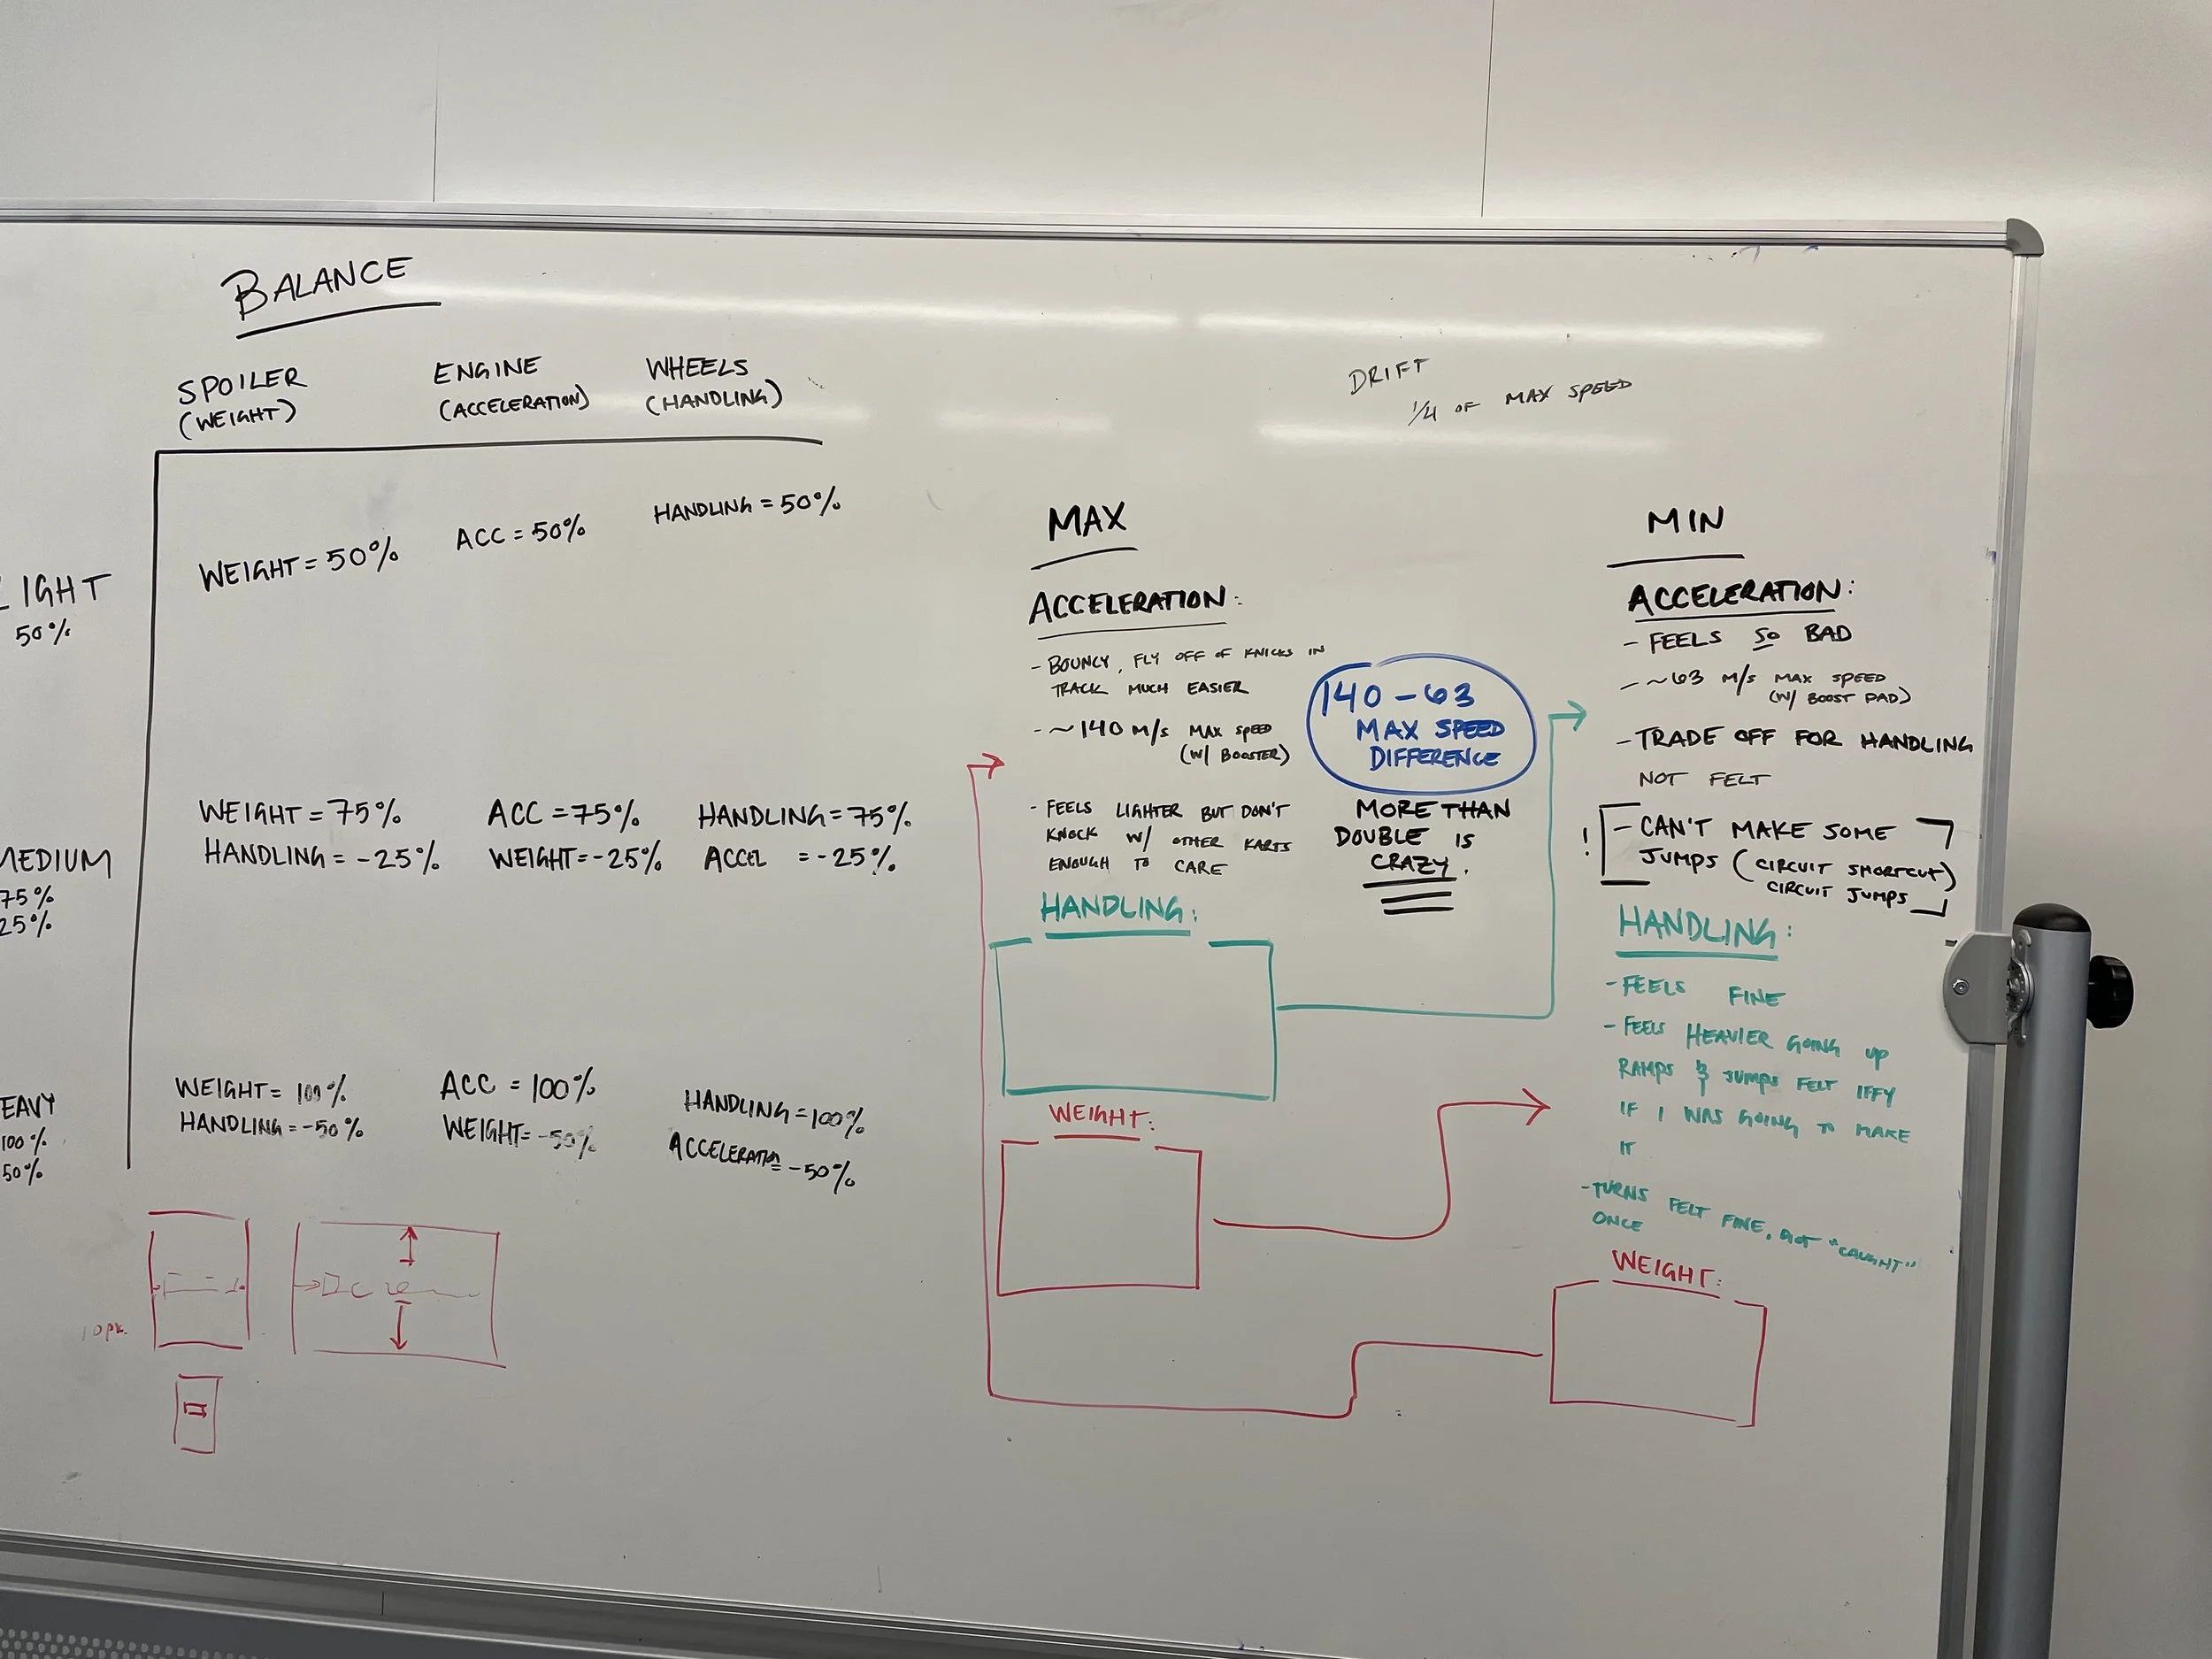 BALANCE
SPOILER
(WEIGHT)
ENGINE
(ACCELERATION)
WHEELS
(HANDLING)
LIGHT
50%
WEIGHT = 50%
ACC = 50%
HANDLING = 50%
MEDIUM
75%
25%
WEIGHT = 75%
HANDLING = -25%
ACC = 75%
WEIGHT = -25%
HANDLING = 75%
ACCEL = -25%
EAVY
100%
50%
WEIGHT = 100%
HANDLING = -50%
ACC = 100%
WEIGHT = -50%
HANDLING = 100%
ACCELERATION = -50%
DRIFT
1/4 OF MAX SPEED
MAX
ACCELERATION:
- BOUNCY, FLY OFF OF KNICKS IN
TRACK MUCH EASIER
- ~140 M/S MAX SPEED
(W/ BOOSTER)
- FEELS LIGHTER BUT DON'T
KNOCK W/ OTHER KARTS
ENOUGH TO CARE
140 - 63
MAX SPEED
DIFFERENCE
MORE THAN
DOUBLE IS
CRAZY.
HANDLING:
WEIGHT:
MIN
ACCELERATION:
- FEELS SO BAD
- ~63 M/S MAX SPEED
(W/ BOOST PAD)
- TRADE OFF FOR HANDLING
NOT FELT
! - CAN'T MAKE SOME
JUMPS (CIRCUIT SHORTCUT)
CIRCUIT JUMPS
HANDLING:
- FEELS FINE
- FEELS HEAVIER GOING UP
RAMPS & JUMPS FELT IFFY
IF I WAS GOING TO MAKE
IT
- TURNS FELT FINE, GOT "CAUGHT"
ONCE
WEIGHT: